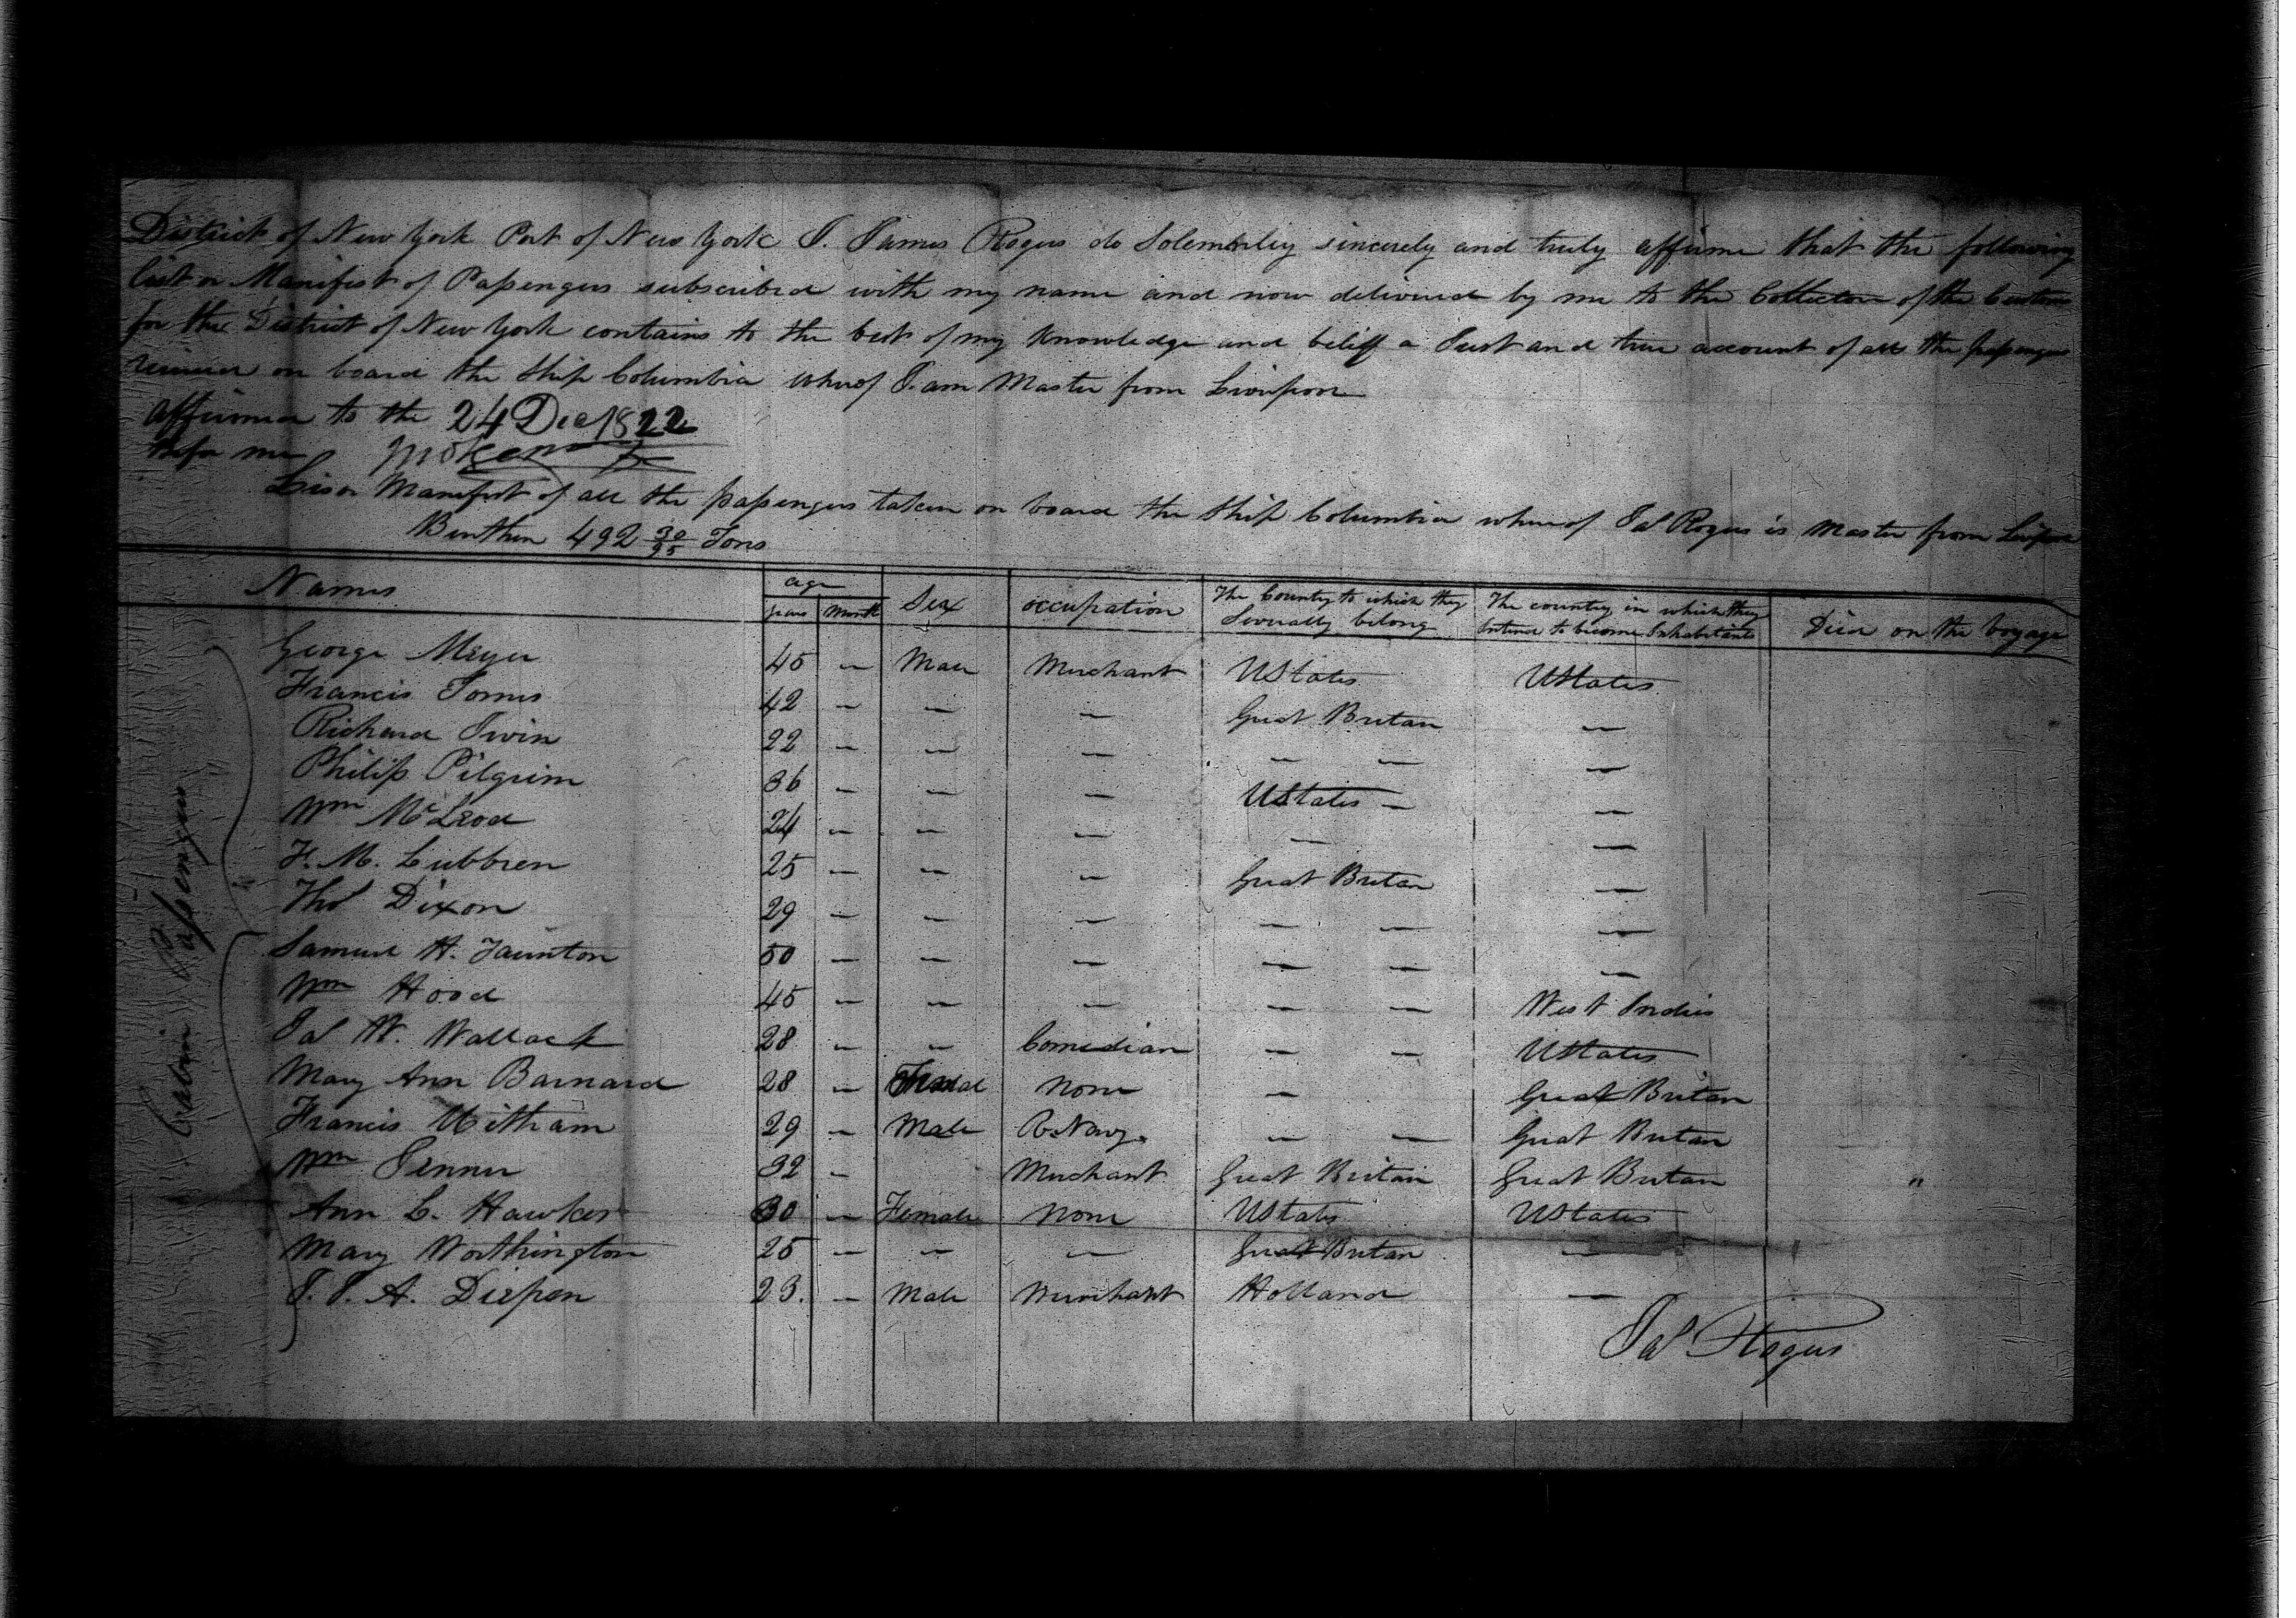 District of New York Port of New York I. James Rogers do Solemnly sincerely and truly affirme that the following
list or Manifest of Passengers subscribed with my name and now delivered by me to the Collector of the Customs
for the District of New York contains to the best of my knowledge and belief a Just and true account of all the passengers
received on board the Ship Columbia whereof I am Master from Liverpool
affirmed to the 24 Dec 1822
Before me
List or Manifest of all the passengers taken on board the Ship Columbia whereof Jas Rogers is Master from Liverpool
Burthen 492 30/95 Tons
Names age years Month Sex occupation The Country to which they Severally belong The country in which they intend to become Inhabitants Died on the Voyage
Cabin Passengers
George Meyer 45 – Male Merchant UStates UStates
Francis Tomes 42 – – – Great Britan –
Richard Irvin 22 – – – – – –
Philip Pilgrim 36 – – – UStates – –
Wm McLeod 24 – – – – –
F. M. Lubbren 25 – – – Great Britan –
Thos Dixon 29 – – – – – –
Samuel H. Taunton 50 – – – – – –
Wm Hood 45 – – – – – West Indies
Jas W. Wallack 28 – – Comedian – – UStates
Mary Ann Barnard 28 – Female None – Great Britan
Francis Witham 29 – Male R. Navy – – Great Britan
Wm Jenner 32 – Merchant Great Britain Great Britan "
Ann L. Hawkes 30 – Female None UStates UStates
Mary Worthington 25 – – – Great Britan –
J. J. A. Diepen 23. – Male Merchant Holland –
Jas Rogers